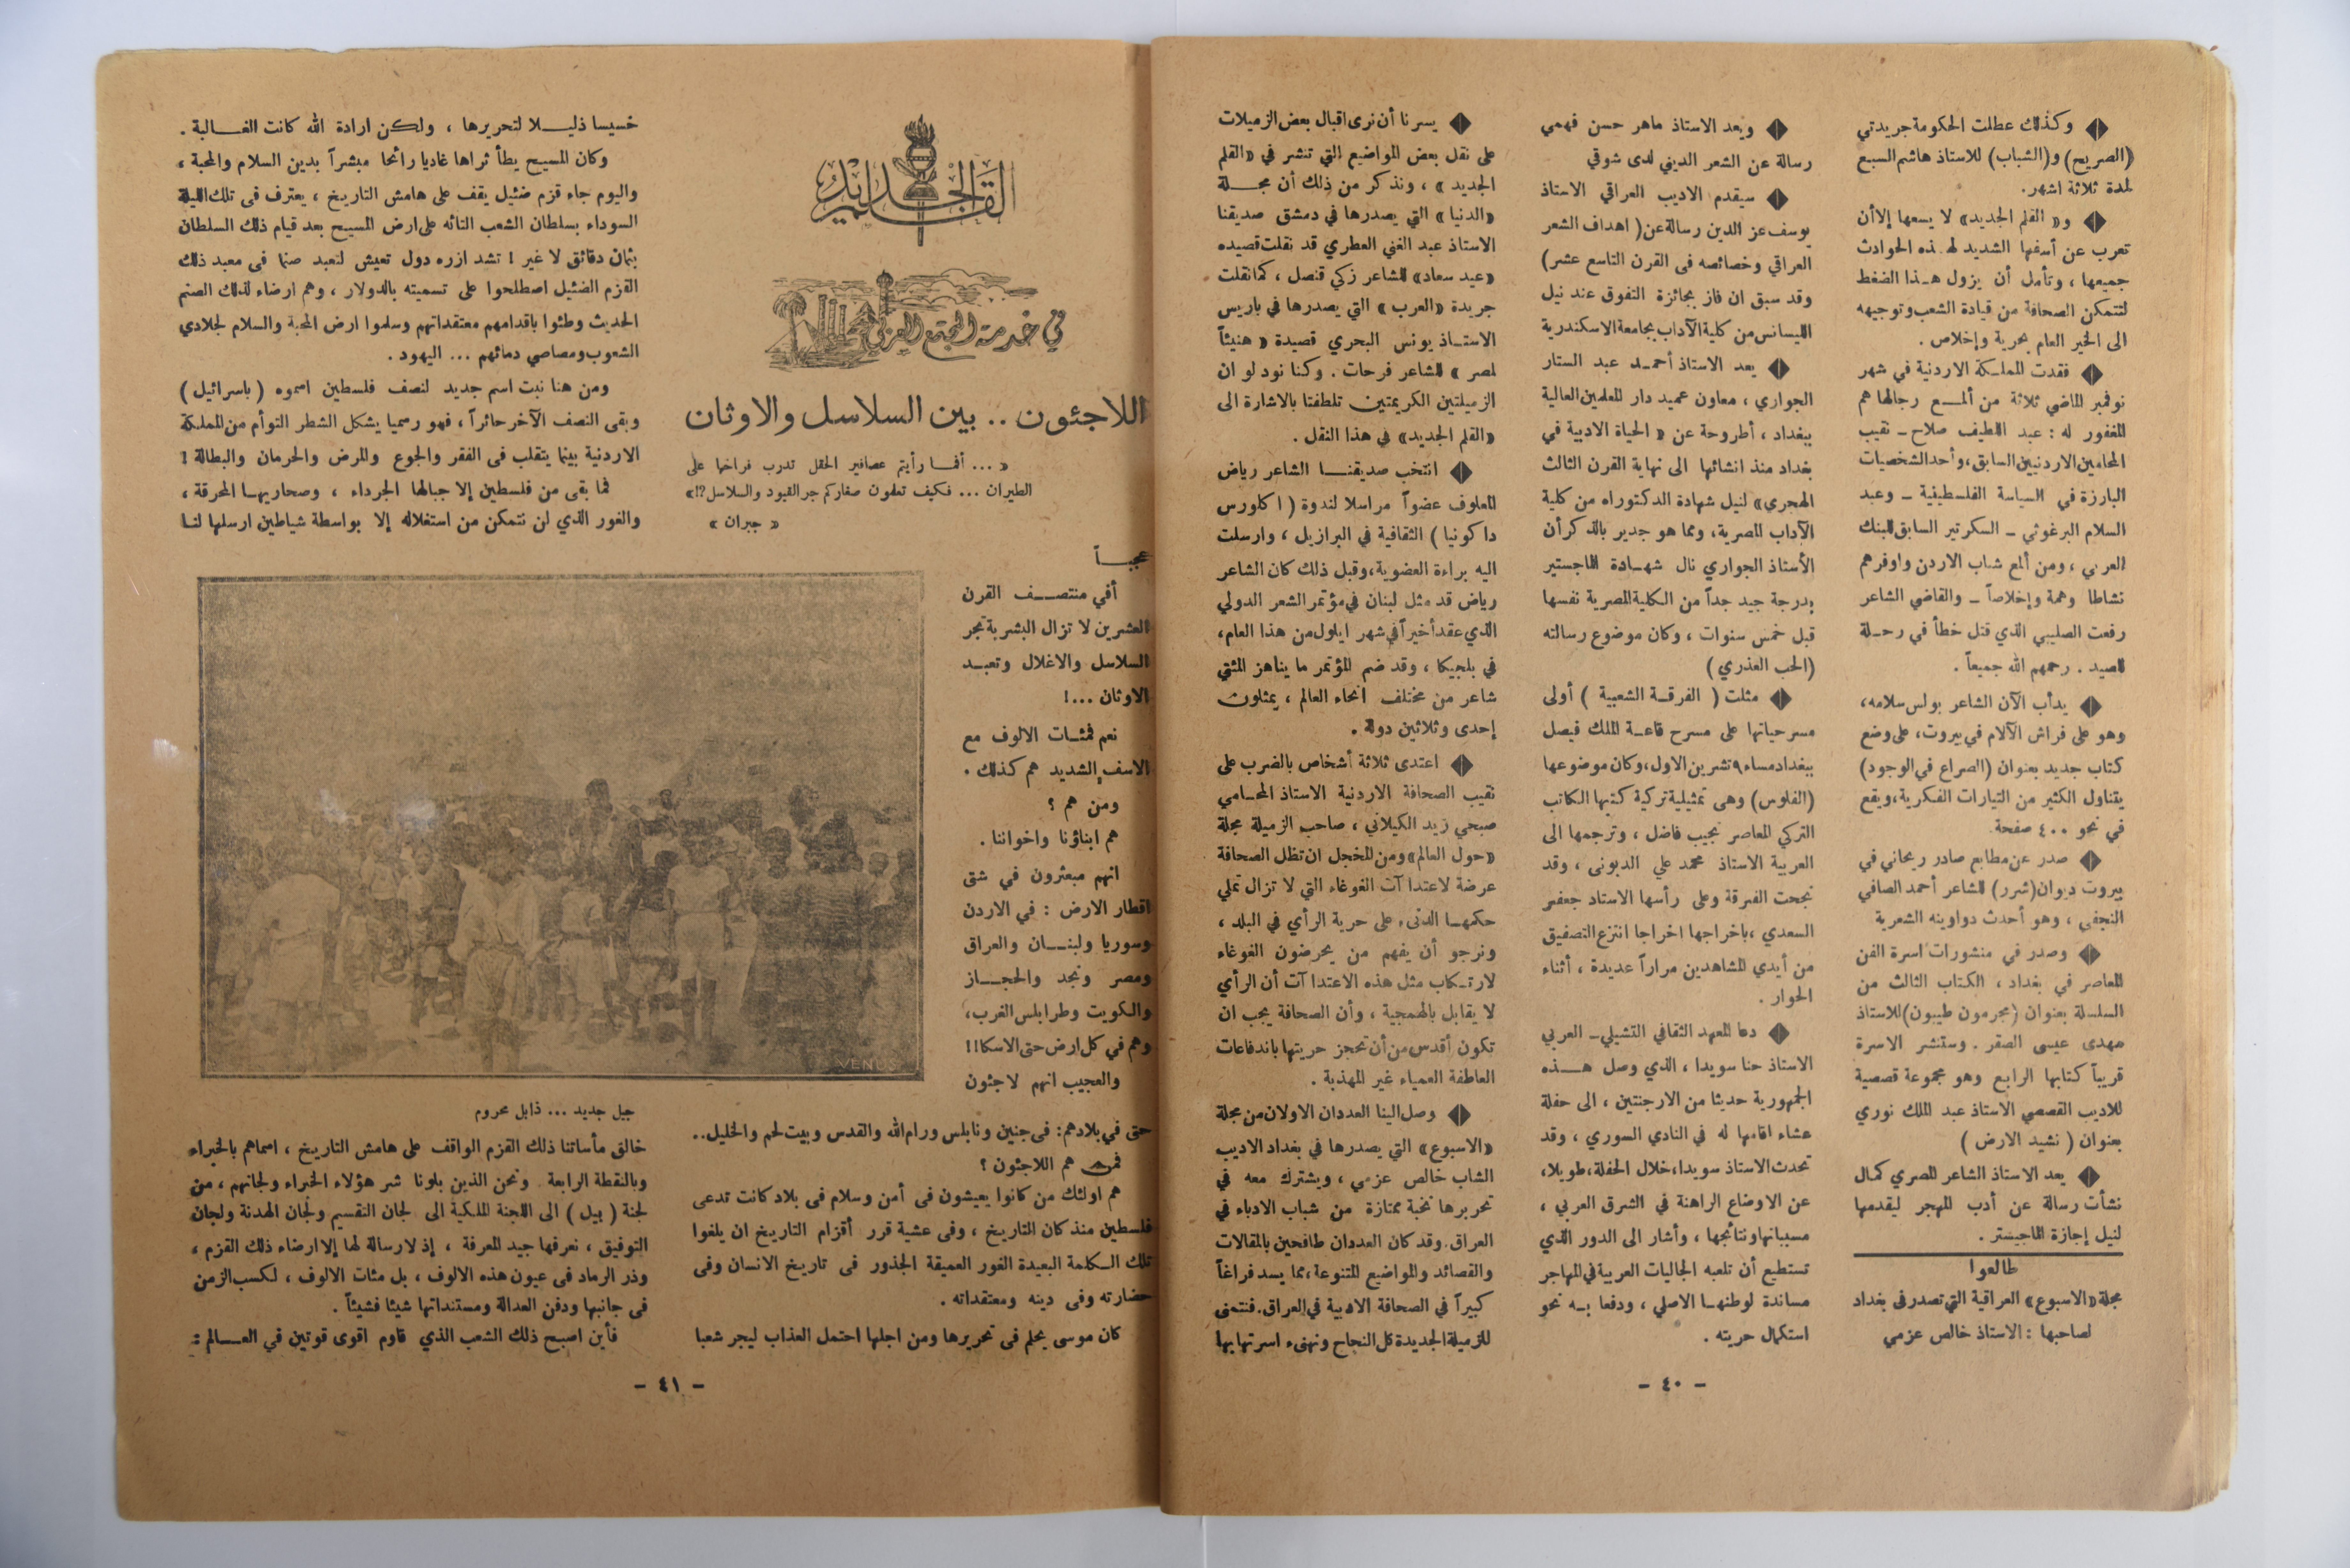 ◆ وكذلك عطلت الحكومة جريدتي
(الصريح) و(الشباب) للاستاذ هاشم السبع
لمدة ثلاثة اشهر.
◆ و« القلم الجديد» لا يسعها إلا أن
تعرب عن أسفها الشديد لهذه الحوادث
جميعها ، وتأمل أن يزول هذا الضغط
لتتمكن الصحافة من قيادة الشعب وتوجيهه
الى الخير العام بحرية وإخلاص .
◆ فقدت المملكة الاردنية في شهر
نوفمبر الماضي ثلاثة من ألمع رجالها هم
المغفور له : عبد اللطيف صلاح – نقيب
المحامين الاردنيين السابق، وأحد الشخصيات
البارزة في السياسة الفلسطينية – وعبد
السلام البرغوثي – السكرتير السابق للبنك
العربي ، ومن ألمع شباب الاردن واوفرهم
نشاطا وهمة وإخلاصاً – والقاضي الشاعر
رفعت الصليبي الذي قتل خطأ في رحلة
للصيد . رحمهم الله جميعاً .
◆ يدأب الآن الشاعر بولس سلامه،
وهو على فراش الآلام في بيروت، على وضع
كتاب جديد بعنوان (الصراع في الوجود)
يتناول الكثير من التيارات الفكرية، ويقع
في نحو ٤٠٠ صفحة
◆ صدر عن مطابع صادر ريحاني في
بيروت ديوان (شرر) للشاعر أحمد الصافي
النجفي ، وهو أحدث دواوينه الشعرية
◆ وصدر في منشورات اسرة الفن
المعاصر في بغداد ، الكتاب الثالث من
السلسلة بعنوان (مجرمون طيبون) للاستاذ
مهدى عيسى الصقر . وستنشر الاسرة
قريباً كتابها الرابع وهو مجموعة قصصية
للاديب القصصي الاستاذ عبد الملك نوري
بعنوان ( نشيد الارض )
◆ يعد الاستاذ الشاعر المصري كمال
نشأت رسالة عن أدب المهجر ليقدمها
لنيل إجازة الماجيستر .
طالعوا
مجلة «الاسبوع» العراقية التي تصدر فى بغداد
لصاحبها : الاستاذ خالص عزمي
◆ ويعد الاستاذ ماهر حسن فهمي
رسالة عن الشعر الديني لدى شوقي
◆ سيقدم الاديب العراقي الاستاذ
يوسف عز الدين رسالة عن ( اهداف الشعر
العراقي وخصائصه فى القرن التاسع عشر)
وقد سبق ان فاز بجائزة التفوق عند نيل
الليسانس من كلية الآداب بجامعة الاسكندرية
◆ يعد الاستاذ أحمد عبد الستار
الجواري ، معاون عميد دار المعلمين العالية
ببغداد ، أطروحة عن « الحياة الادبية في
بغداد منذ انشائها الى نهاية القرن الثالث
الهجري» لنيل شهادة الدكتوراه من كلية
الآداب المصرية، ومما هو جدير بالذكر أن
الأستاذ الجواري نال شهادة الماجستير
بدرجة جيد جداً من الكلية المصرية نفسها
قبل خمس سنوات ، وكان موضوع رسالته
(الحب العذري)
◆ مثلت ( الفرقة الشعبية ) أولى
مسرحياتها على مسرح قاعة الملك فيصل
ببغداد مساء ٩ تشرين الاول، وكان موضوعها
(الفلوس) وهى تمثيلية تركية كتبها الكاتب
التركي المعاصر نجيب فاضل ، وترجمها الى
العربية الاستاذ محمد علي الدبونى ، وقد
نجحت الفرقة وعلى رأسها الاستاد جعفر
السعدي ، باخراجها اخراجا انتزع التصفيق
من أيدي المشاهدين مراراً عديدة ، أثناء
الحوار .
◆ دعا المعهد الثقافي التشيلي– العربي
الاستاذ حنا سويدا ، الذي وصل هذه
الجمهورية حديثا من الارجنتين ، الى حفلة
عشاء اقامها له في النادي السوري ، وقد
تحدث الاستاذ سويدا، خلال الحفلة، طويلا،
عن الاوضاع الراهنة في الشرق العربي ،
مسبباتها ونتائجها ، وأشار الى الدور الذي
تستطيع أن تلعبه الجاليات العربية في المهاجر
مساندة لوطنها الاصلي ، ودفعا به نحو
استكمال حريته .
◆ يسرنا أن نرى اقبال بعض الزميلات
على نقل بعض المواضيع التي تنشر في «القلم
الجديد» ، ونذكر من ذلك أن مجلة
«الدنيا» التي يصدرها في دمشق صديقنا
الاستاذ عبد الغني العطري قد نقلت قصيده
«عيد سعاد» للشاعر زكي قنصل ، كما نقلت
جريدة «العرب» التي يصدرها في باريس
الاستاذ يونس البحري قصيدة « هنيئاً
لمصر » للشاعر فرحات . وكنا نود لو ان
الزميلتين الكريمتين تلطفتا بالاشارة الى
«القلم الجديد» في هذا النقل .
◆ انتخب صديقنا الشاعر رياض
المعلوف عضواً مراسلا لندوة ( اكلورس
داكونيا ) الثقافية في البرازيل ، وارسلت
اليه براءة العضوية، وقبل ذلك كان الشاعر
رياض قد مثل لبنان في مؤتمر الشعر الدولي
الذي عقد أخيراً في شهر ايلول من هذا العام،
في بلجيكا ، وقد ضم المؤتمر ما يناهز المئتي
شاعر من مختلف انحاء العالم ، يمثلون
إحدى وثلاثين دولة .
◆ اعتدى ثلاثة أشخاص بالضرب على
نقيب الصحافة الاردنية الاستاذ المحامي
صبحي زيد الكيلاني ، صاحب الزميلة مجلة
«حول العالم» ومن المخجل ان تظل الصحافة
عرضة لاعتداآت الغوغاء التي لا تزال تملي
حكمها الدنىء على حرية الرأي في البلد ،
ونرجو أن يفهم من يحرضون الغوغاء
لارتكاب مثل هذه الاعتداآت أن الرأي
لا يقابل بالهمجية ، وأن الصحافة يجب ان
تكون أقدس من أن تحجز حريتها باندفاعات
العاطفة العمياء غير المهذبة .
◆ وصل الينا العددان الاولان من مجلة
«الاسبوع» التي يصدرها في بغداد الاديب
الشاب خالص عزمي ، ويشترك معه في
تحريرها نخبة ممتازة من شباب الادباء في
العراق. وقد كان العددان طافحين بالمقالات
والقصائد والمواضيع المتنوعة، مما يسد فراغاً
كبيراً في الصحافة الادبية في العراق. فنتمنى
للزميلة الجديدة كل النجاح ونهنىء اسرتها بها
– ٤٠ –
القلم الجديد
في خدمة المجتمع العربي
اللاجئون .. بين السلاسل والاوثان
« ... أفما رأيتم عصافير الحقل تدرب فراخها على
الطيران ... فكيف تعلمون صغاركم جر القيود والسلاسل؟!»
« جبران »
عجباً
أفي منتصف القرن
العشرين لا تزال البشرية تجر
السلاسل والاغلال وتعبد
الاوثان ...!
نعم فمئات الالوف مع
الاسف الشديد هم كذلك .
ومن هم ؟
هم ابناؤنا واخواننا .
انهم مبعثرون في شتى
اقطار الارض : في الاردن
وسوريا ولبنان والعراق
ومصر ونجد والحجاز
والكويت وطرابلس الغرب،
وهم في كل ارض حتى الاسكا!!
والعجيب انهم لاجئون
حتى في بلادهم: فى جنين ونابلس ورام الله والقدس وبيت لحم والخليل..
فمن هم اللاجئون ؟
هم اولئك من كانوا يعيشون فى أمن وسلام فى بلاد كانت تدعى
فلسطين منذ كان التاريخ ، وفى عشية قرر أقزام التاريخ ان يلغوا
تلك الكلمة البعيدة الغور العميقة الجذور فى تاريخ الانسان وفى
حضارته وفى دينه ومعتقداته .
كان موسى يحلم فى تحريرها ومن اجلها احتمل العذاب ليجر شعبا
خسيسا ذليلا لتحريرها ، ولكن ارادة الله كانت الغالبة .
وكان المسيح يطأ ثراها غاديا رائحا مبشراً بدين السلام والمحبة ،
واليوم جاء قزم ضئيل يقف على هامش التاريخ ، يعترف فى تلك الليلة
السوداء بسلطان الشعب التائه على ارض المسيح بعد قيام ذلك السلطان
بثمان دقائق لا غير ! تشد ازره دول تعيش لتعبد صنما فى معبد ذلك
القزم الضئيل اصطلحوا على تسميته بالدولار ، وهم ارضاء لذلك الصنم
الحديث وطئوا باقدامهم معتقداتهم وسلموا ارض المحبة والسلام لجلادي
الشعوب ومصاصي دمائهم ... اليهود .
ومن هنا نبت اسم جديد لنصف فلسطين اسموه ( باسرائيل )
وبقى النصف الآخر حائراً ، فهو رسميا يشكل الشطر التوأم من المملكة
الاردنية بينما يتقلب فى الفقر والجوع والمرض والحرمان والبطالة !
فما بقى من فلسطين إلا جبالها الجرداء ، وصحاريها المحرقة ،
والغور الذي لن نتمكن من استغلاله إلا بواسطة شياطين ارسلها لنا
VENUS
جيل جديد ... ذابل محروم
خالق مأساتنا ذلك القزم الواقف على هامش التاريخ ، اسماهم بالخبراء
وبالنقطة الرابعة ونحن الذين بلونا شر هؤلاء الخبراء ولجانهم ، من
لجنة ( بيل ) الى اللجنة الملكية الى لجان التقسيم ولجان الهدنة ولجان
التوفيق ، نعرفها جيد المعرفة ، إذ لا رسالة لها إلا ارضاء ذلك القزم ،
وذر الرماد فى عيون هذه الالوف ، بل مئات الالوف ، لكسب الزمن
فى جانبها ودفن العدالة ومستنداتها شيئا فشيئاً .
فأين اصبح ذلك الشعب الذي قاوم اقوى قوتين في العالم :
– ٤١ –